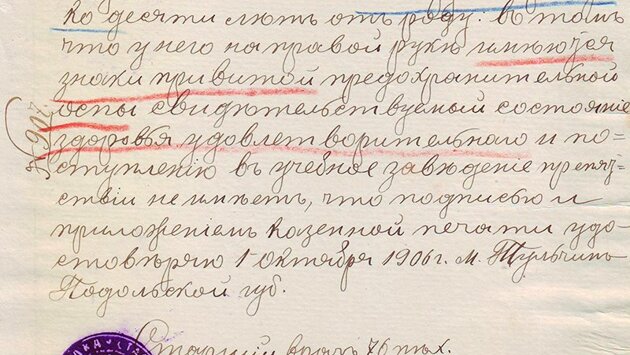 ко десяти лѣтъ отъ роду. въ томъ
что у него на правой рукѣ имѣются
знаки привитой предохранительной
оспы свидѣтельствуемый состояніе
здоровья удовлетворительнаго и по-
ступленію въ учебное заведеніе препят-
ствій не имѣетъ, что подписью и
приложеніемъ казенной печати удо-
стовѣряю 1 октября 1906 г. м. Тульчинъ
Подольской губ.
Старшій врачъ 76 пѣх.